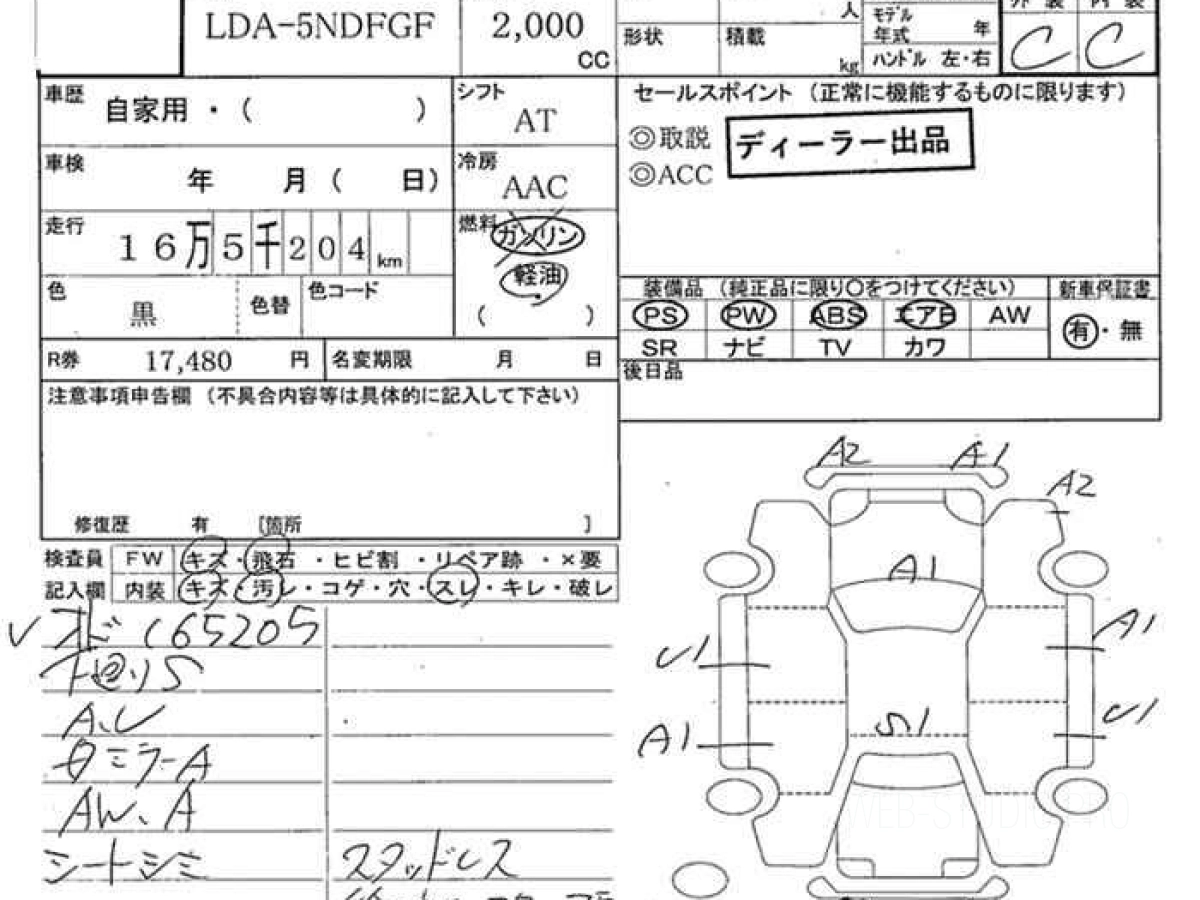 LDA-5NDFGF 2,000 CC
人
形状 積載 kg
モデル年式 年
ハンドル 左・右
外装 内装
C C
車歴 自家用・( )
シフト AT
車検 年 月( 日)
冷房 AAC
走行 16万5千204km
燃料 ガソリン
軽油
( )
色 黒 色替 色コード
R券 17,480 円 名変期限 月 日
注意事項申告欄 (不具合内容等は具体的に記入して下さい)
修復歴 有 [箇所 ]
セールスポイント (正常に機能するものに限ります)
◎取説 ディーラー出品
◎ACC
装備品 (純正品に限り〇をつけてください) 新車保証書
PS PW ABS エアB AW 有・無
SR ナビ TV カワ
後日品
検査員 FW キズ・飛石・ヒビ割・リペア跡・×要
記入欄 内装 キズ・汚レ・コゲ・穴・スレ・キレ・破レ
レオド 165205
下廻りS
A、U
ミラーA
AW、A
シートシミ スタッドレス
A2 A1
A2
A1
A1
U1
U1
S1
A1